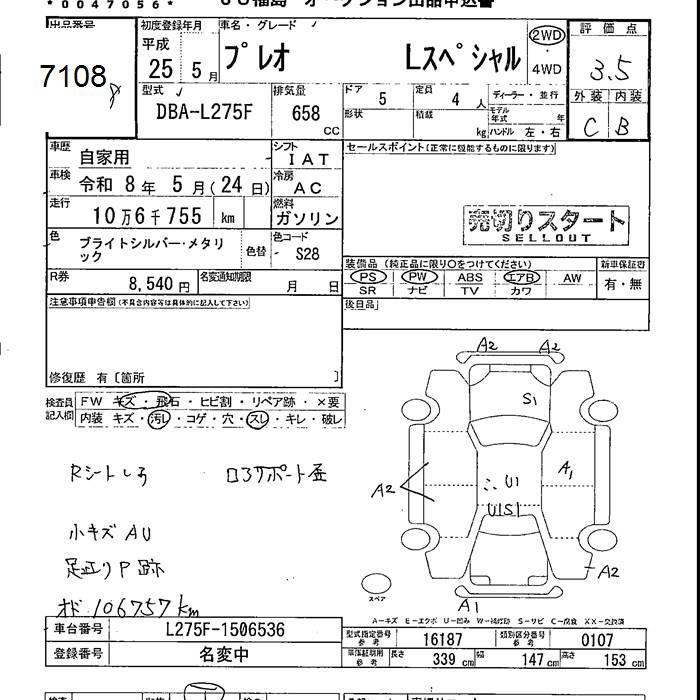 * 0 0 4 7 0 5 6 *
7108
初度登録年月
平成
25 5 月
車名・グレード
プレオ Lスペシャル
2WD
4WD
評価点
3.5
外装 内装
C B
型式
DBA-L275F
排気量
658
CC
ドア 5
定員 4 人
形状
積載 kg
ディーラー・並行
モデル年式 年
ハンドル 左・右
車歴
自家用
シフト
IAT
車検
令和 8 年 5 月(24 日)
冷房
AC
走行
10万6千755 km
燃料
ガソリン
色
ブライトシルバー・メタリック
色替
色コード
S28
R券
8,540 円
名変通知期限
月 日
セールスポイント(正常に機能するものに限ります)
売切りスタート
SELLOUT
装備品(純正品に限り○をつけてください)
PS PW ABS エアB AW
SR ナビ TV カワ
新車保証書
有・無
後日品
注意事項申告欄(不具合内容等は具体的に記入して下さい)
修復歴 有〔箇所 〕
検査員記入欄
FW キズ・飛石・ヒビ割・リペア跡・×要
内装 キズ・汚レ・コゲ・穴・スレ・キレ・破レ
Rシートしみ
ロアサポート歪
小キズ AU
足廻りP跡
オド 106757km
A2 A2
S1
A2
U1
A1
U1S1
A2
A1
スペア
A-キズ E-エクボ U-凹み W-補修跡 S-サビ C-腐食 XX-交換済
車台番号
L275F-1506536
登録番号
名変中
型式指定番号 参考
16187
類別区分番号 参考
0107
車検証期用 参考
長さ 339 cm
幅 147 cm
高さ 153 cm